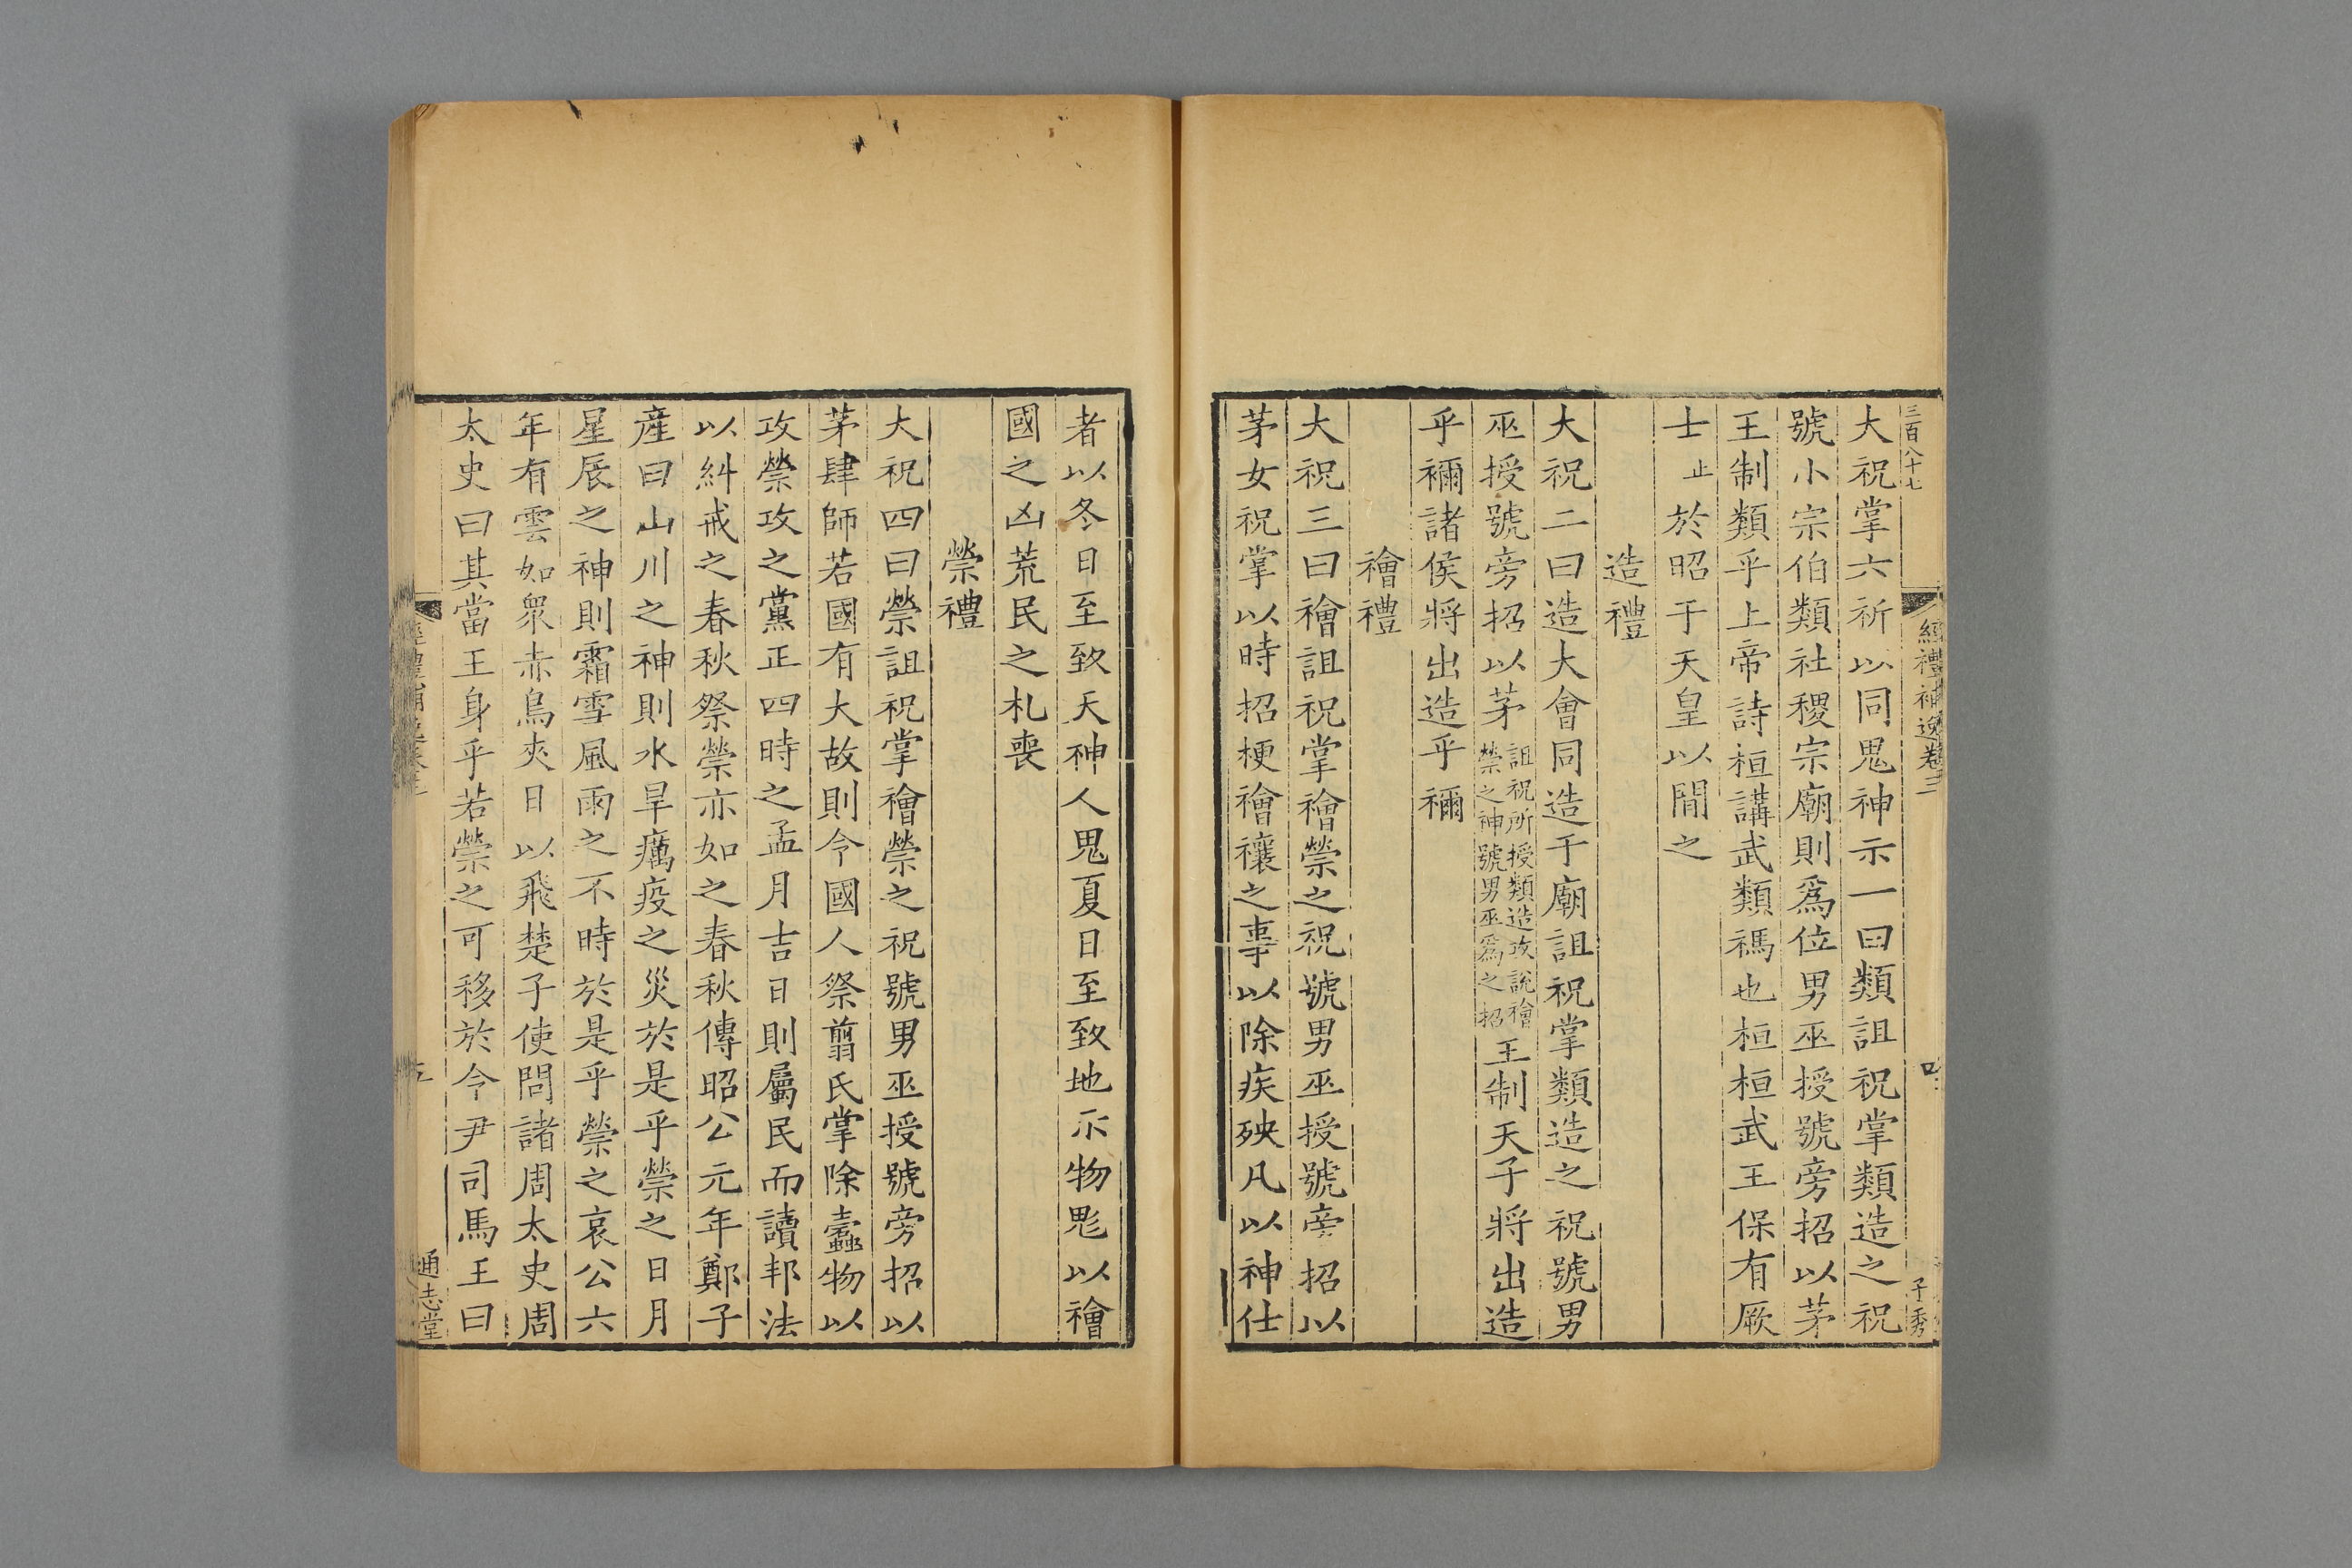 三百八十七
經禮補逸卷三
子秀
大祝掌六祈以同鬼神示一曰類詛祝掌類造之祝
號小宗伯類社稷宗廟則爲位男巫授號旁招以茅
王制類乎上帝詩桓講武類禡也桓桓武王保有厥
士止於昭于天皇以間之
造禮
大祝二曰造大會同造于廟詛祝掌類造之祝號男
巫授號旁招以茅詛祝所授類造攻說禬禜之神號男巫爲之招王制天子將出造
乎禰諸侯將出造乎禰
禬禮
大祝三曰禬詛祝掌禬禜之祝號男巫授號旁招以
茅女祝掌以時招梗禬禳之事以除疾殃凡以神仕
者以冬日至致天神人鬼夏日至致地示物鬽以禬
國之凶荒民之札喪
禜禮
大祝四曰禜詛祝掌禬禜之祝號男巫授號旁招以
茅肆師若國有大故則令國人祭翦氏掌除蠹物以
攻禜攻之黨正四時之孟月吉日則屬民而讀邦法
以糾戒之春秋祭禜亦如之春秋傳昭公元年鄭子
産曰山川之神則水旱癘疫之災於是乎禜之日月
星辰之神則霜雪風雨之不時於是乎禜之哀公六
年有雲如衆赤烏夾日以飛楚子使問諸周太史周
太史曰其當王身乎若禜之可移於令尹司馬王曰
經禮補逸卷三
五
通志堂